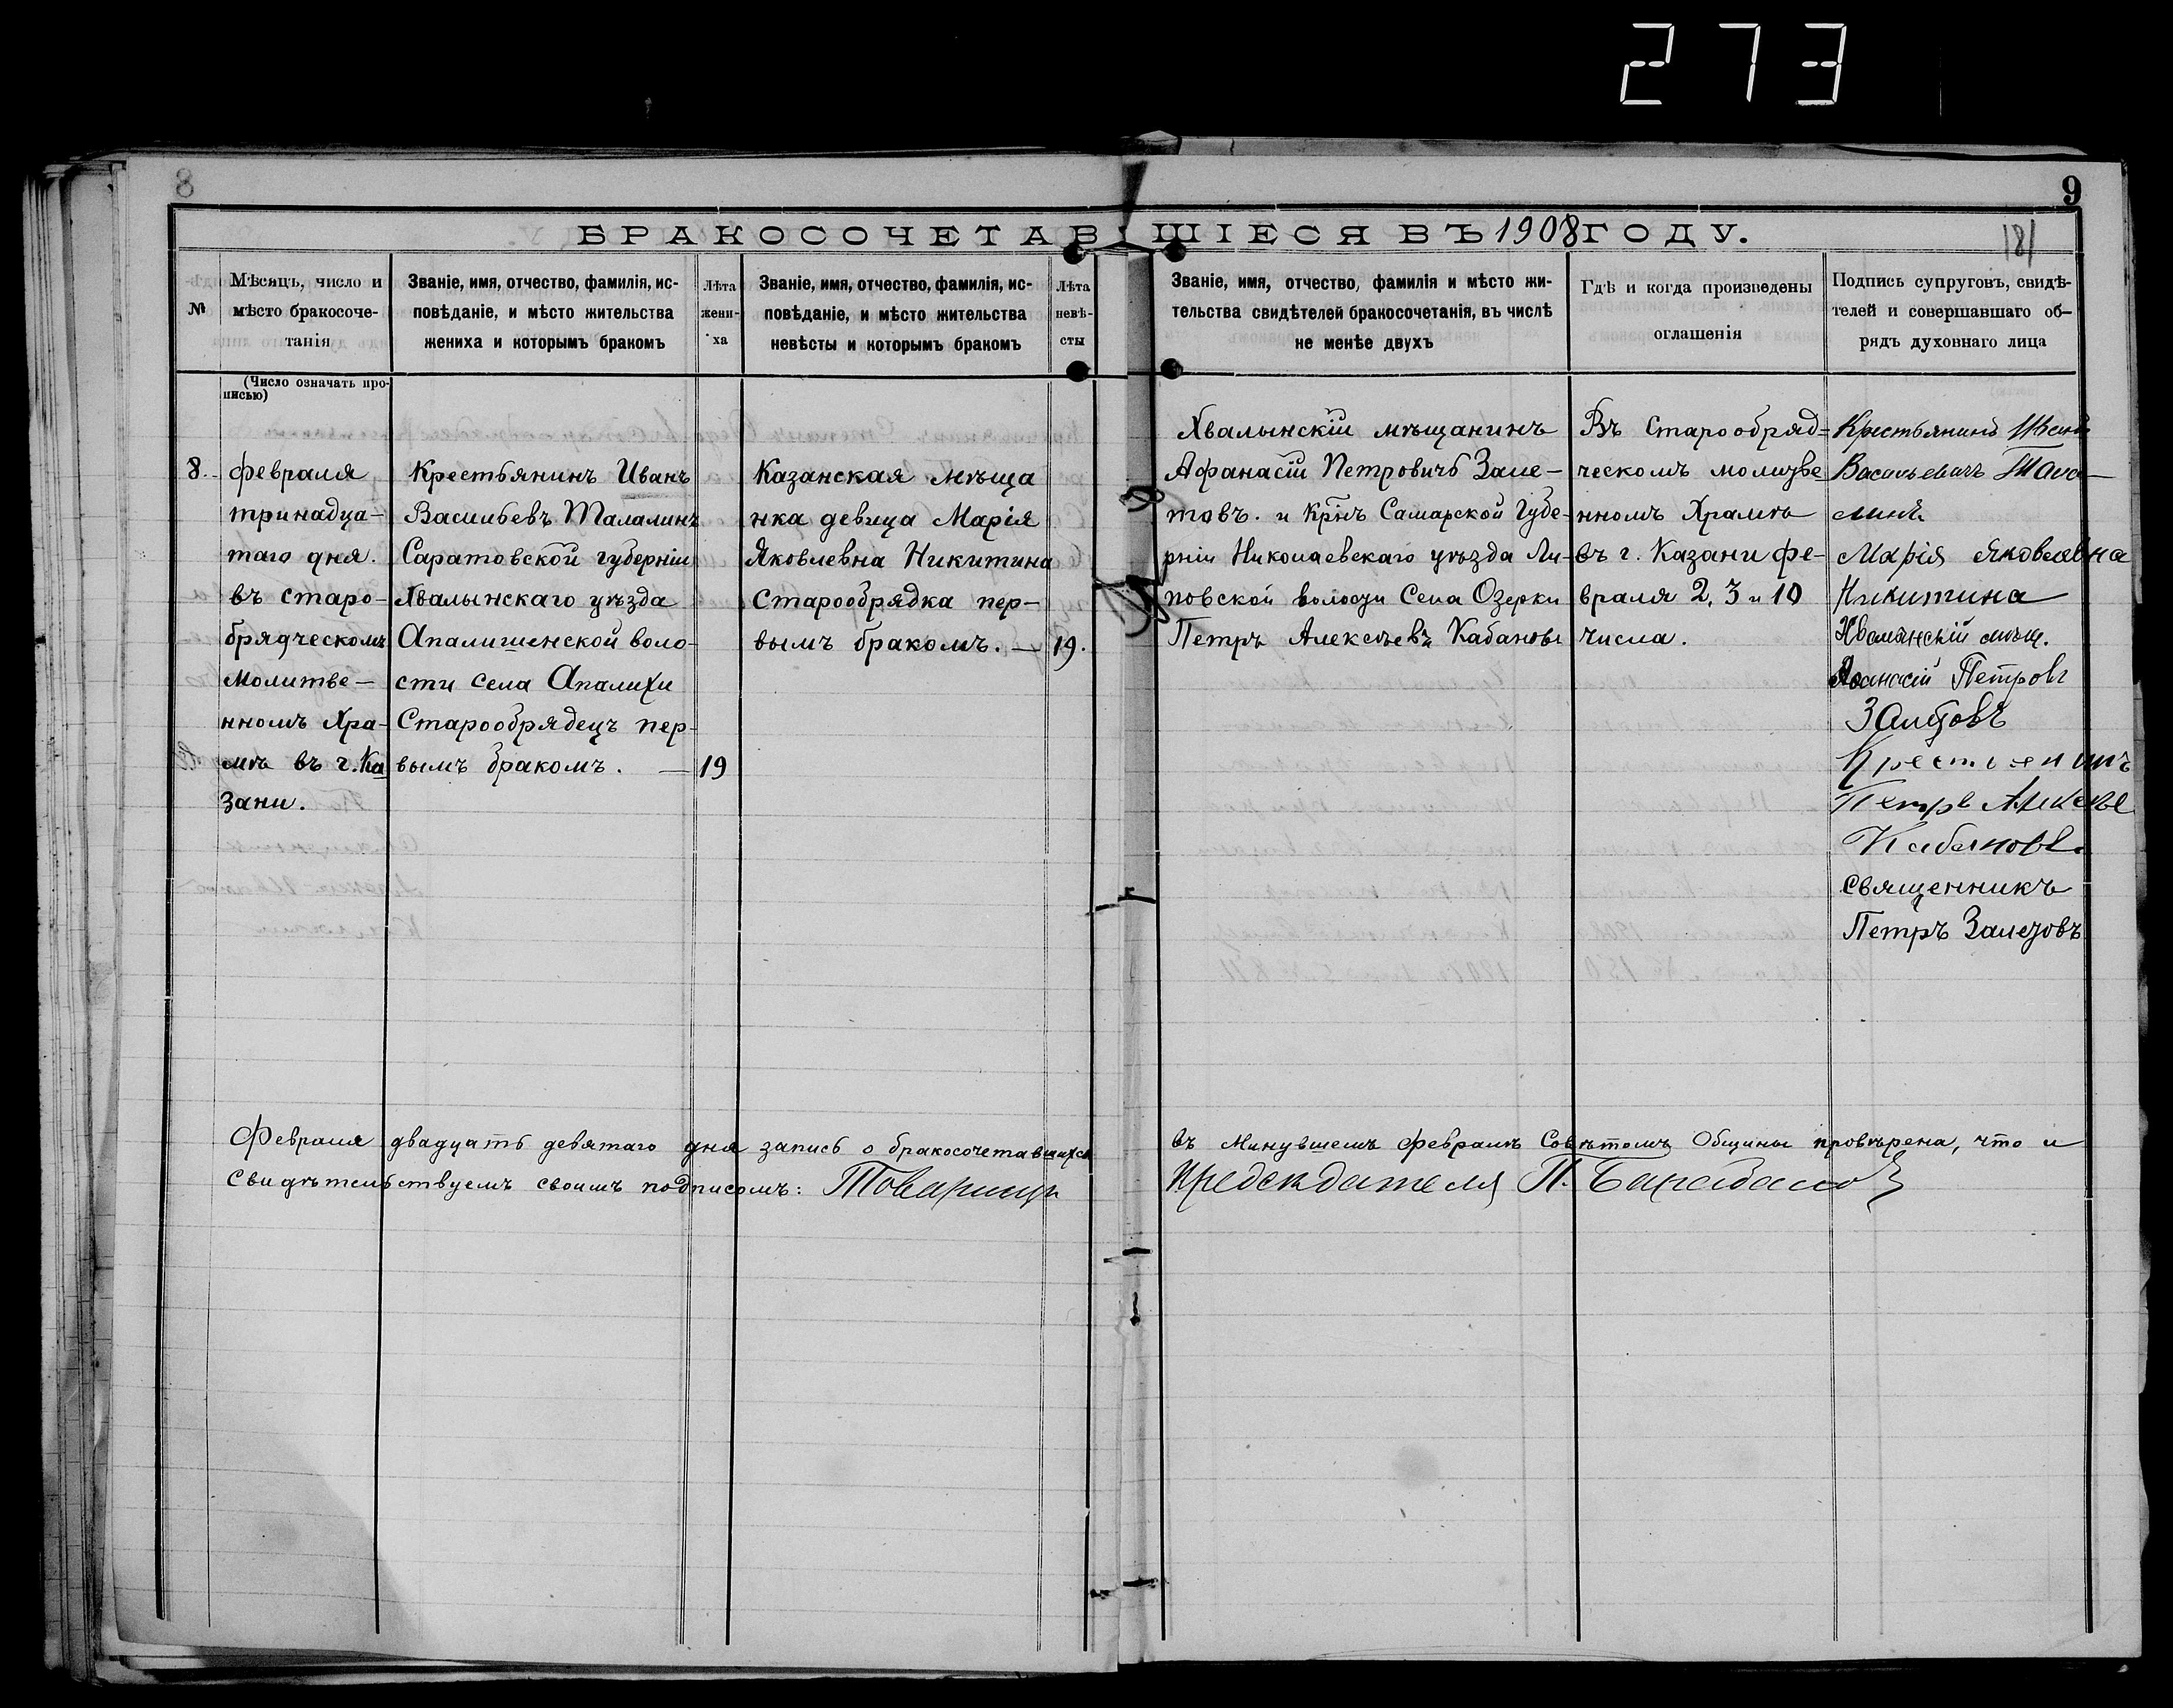 273
8
9
БРАКОСОЧЕТАВШІЕСЯ ВЪ 1908 ГОДУ.
181
№
Мѣсяцъ, число и
мѣсто бракосоче-
танія
Званіе, имя, отчество, фамилія, ис-
повѣданіе, и мѣсто жительства
жениха и которымъ бракомъ
Лѣта
жени-
ха
Званіе, имя, отчество, фамилія, ис-
повѣданіе, и мѣсто жительства
невѣсты и которымъ бракомъ
Лѣта
невѣ-
сты
Званіе, имя, отчество, фамилія и мѣсто жи-
тельства свидѣтелей бракосочетанія, въ числѣ
не менѣе двухъ
Гдѣ и когда произведены
оглашенія
Подпись супруговъ, свидѣ-
телей и совершавшаго об-
рядъ духовнаго лица
(Число означать про-
писью)
8.
февраля
тринадца-
таго дня.
въ старо-
брядческомъ
Молитве-
нномъ Хра-
мѣ въ г. Ка
зани.
Крестьянинъ Иванъ
Васильевъ Талалинъ
Саратовской губерніи
Хвалынскаго уѣзда
Апалишенской воло-
сти села Апалихи
Старообрядецъ пер-
вымъ бракомъ. —
19
Казанская мѣща
нка девица Марія
Яковлевна Никитина
Старообрядка пер-
вымъ бракомъ. —
19.
Хвалынскій мѣщанинъ
Афанасій Петровичъ Зале-
товъ. и Крнъ Самарской Губе-
рніи Николаевскаго уѣзда Ли-
повской волости Села Озерки
Петръ Алексѣевъ Кабановъ
Въ Старообряд=
ческомъ молитве
нномъ Храмѣ
въ г. Казани фе-
враля 2, 3 и 10
числа.
Крестьянинъ Иванъ
Васильевичъ Тала-
линъ
Марія Яковлевна
Никитина
Хвалынскій мѣщ.
Афанасій Петровъ
Залѣтовъ
Крестьенинъ
Петръ Алексѣе
Кабановъ.
священникъ
Петръ Залетовъ
Февраля двадцать девятаго дня запись о бракосочетавшихся въ Минувшемъ Февралѣ Совѣтомъ Общины провѣрена, что и
Свидѣтельствуемъ своимъ подписомъ: Товарищъ Предсѣдателя П.